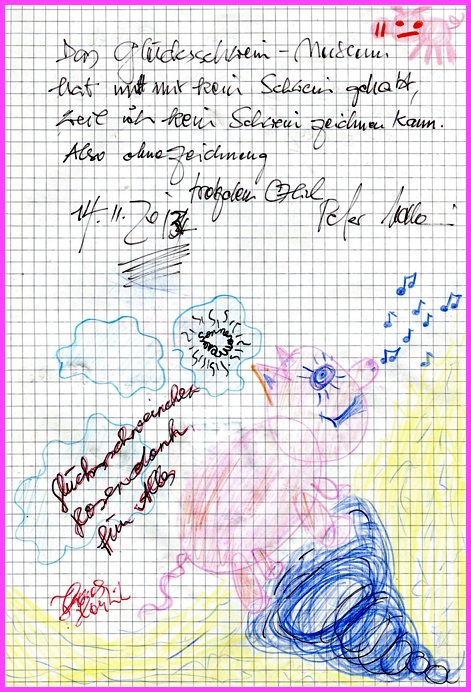 Das Glücksschwein-Museum
hat mit mir kein Schwein gehabt,
weil ich kein Schwein zeichnen kann.
Also ohne Zeichnung
trotzdem
14.11.
Peter
Glücksschweinchen
Rosendank
für Alles